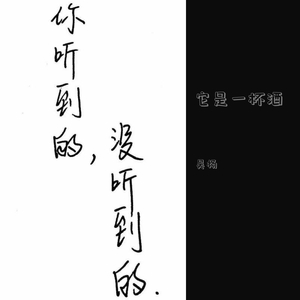 你听到的，
没听到的.
它是一杯酒
吴杨